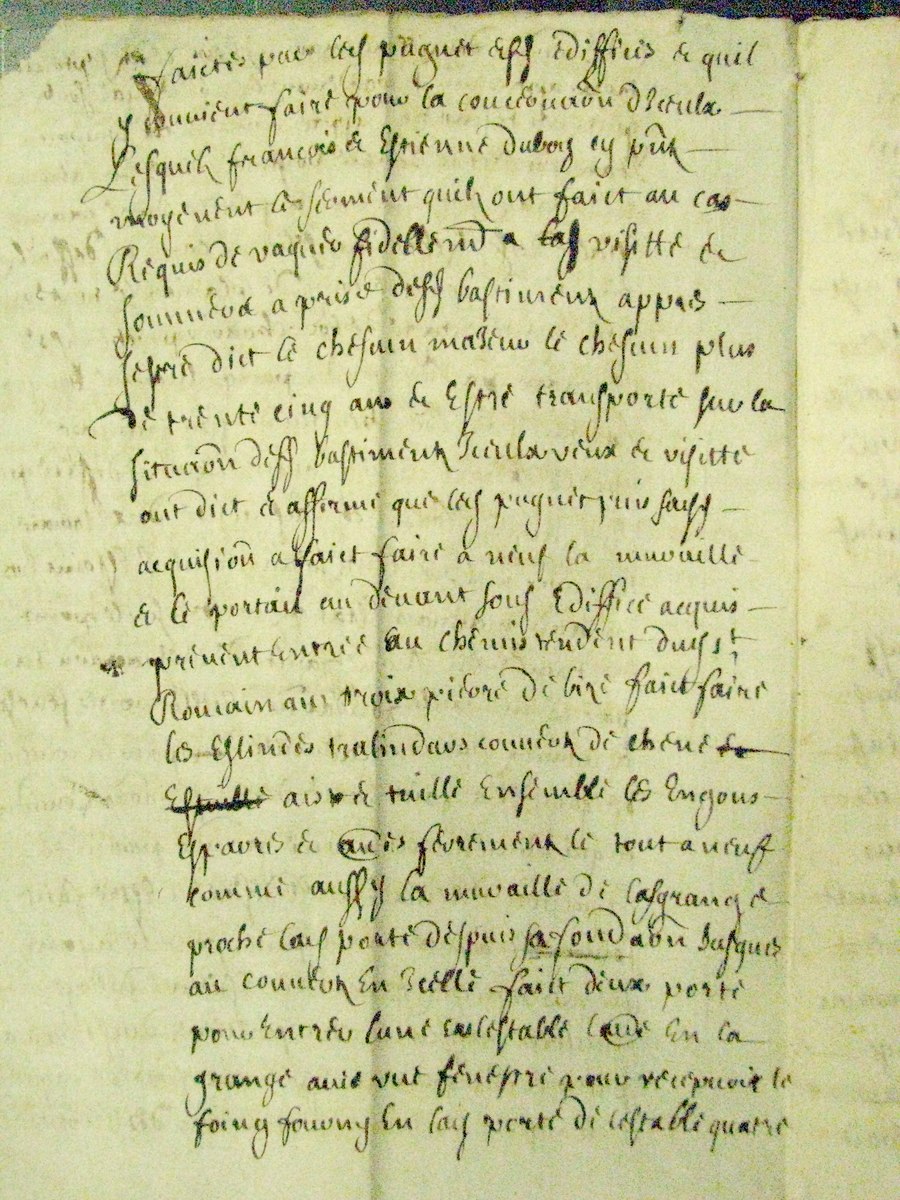 faictes par led pugnet esd ediffices & quil
y convient faire pour la conservaõn d'Iceulx
Lesquels francois & Estienne duboy
moyenent le serment quils ont faict au cas
Requis de vaquer fidellemt a lad visitte &
a prise desd bastimens appres
sestre dict le chescun le chescun plus
de trente cinq ans & Estre transporte sur la
situaõn desd bastimens Iceulx veux & visitte
ont dict & afferme que led pugnet puis sad
acquisiõn a faict faire a neuf la muraille
& le portail au devant sond Ediffice acquis
prenent Entree au chemin tendent dud St
Romain aux trois de bize faict faire
les couvers de chene &
ais & tuille Ensemble les Engons
Esparres & aues ferrements le tout a neuf
comme aussy la muraille de lad grange
proche lad porte despuis sa fondaõn Jusques
au couvert En Icelle faict deux porte
pour Entrer lune En lestable laue En la
grange avec une fenestre pour recepvoir le
foing En lad porte de lestable quatre